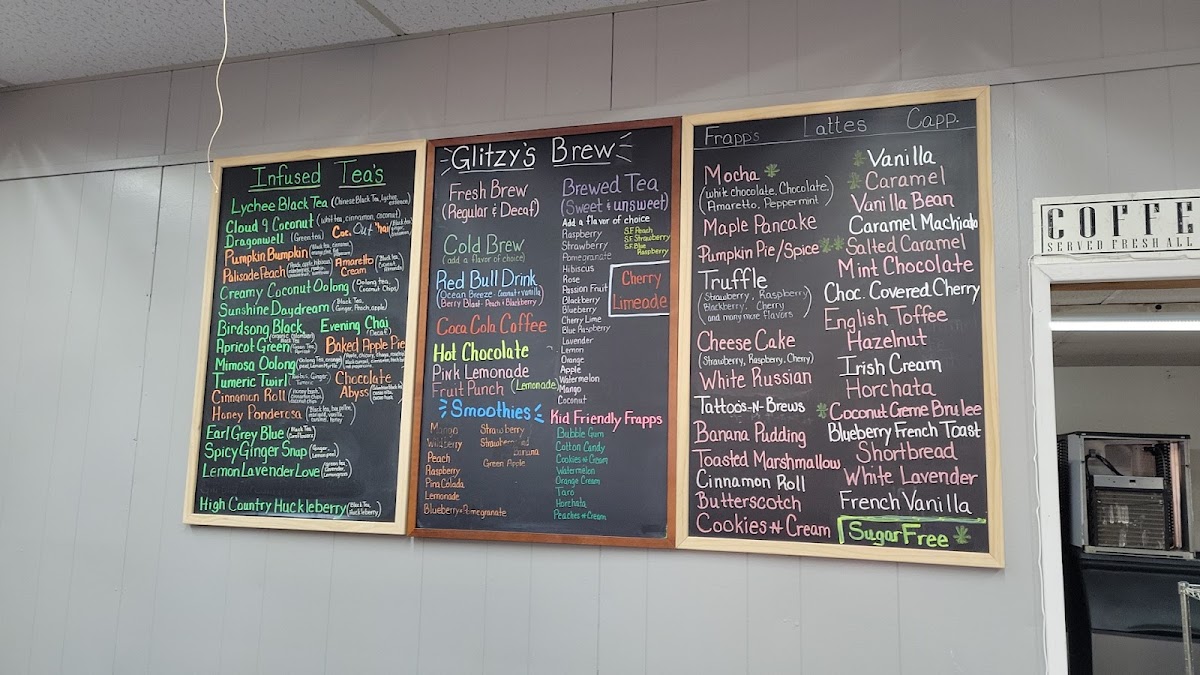 Infused Tea's
Lychee Black Tea (Chinese Black Tea, Lychee essence)
Cloud 9 Coconut (whit tea, cinnamon, coconut)
Dragonwell (Green tea) Coc. Out "han
Pumpkin Bumpkin
Palisade Peach Amaretto
Cream
Creamy Coconut Oolong (Oolong tea, Coconut Chips)
Sunshine Daydream (Black Tea, Ginger, Peach, apple)
Birdsong Black Evening Chai
(Decaf)
Apricot Green Baked Apple Pie
Mimosa Oolong
Tumeric Twirl Chocolate
Cinnamon Roll Abyss
Honey Ponderosa
Earl Grey Blue
Spicy Ginger Snap
Lemon Lavender Love
High Country Huckleberry (Black Tea, Huckleberry)
Glitzy's Brew
Fresh Brew
(Regular & Decaf)
Cold Brew
(add a flavor of choice)
Red Bull Drink
(Ocean Breeze - Coconut + Vanilla)
(Berry Blast - Peach + Blackberry)
Coca Cola Coffee
Hot Chocolate
Pink Lemonade
Fruit Punch (Lemonade)
Smoothies
Mango
Wildberry
Peach
Raspberry
Pina Colada
Lemonade
Blueberry-Pomegranate
Strawberry
Banana
Green Apple
Brewed Tea
(Sweet & unsweet)
Add a flavor of choice
Raspberry
Strawberry
Pomegranate
Hibiscus
Rose
Passion Fruit
Blackberry
Blueberry
Cherry Lime
Blue Raspberry
Lavender
Lemon
Orange
Apple
Watermelon
Mango
Coconut
S.F. Peach
S.F. Strawberry
S.F. Blue
Raspberry
Cherry
Limeade
Kid Friendly Frapps
Bubble Gum
Cotton Candy
Cookies n Cream
Watermelon
Orange Cream
Taro
Horchata
Peaches n Cream
Frapp's Lattes Capp.
Mocha
(white chocolate, Chocolate,
Amaretto, Peppermint)
Maple Pancake
Pumpkin Pie/Spice
Truffle
(Strawberry, Raspberry
Blackberry, Cherry
and many more flavors)
Cheese Cake
(Strawberry, Raspberry, Cherry)
White Russian
Tattoo's-N-Brews
Banana Pudding
Toasted Marshmallow
Cinnamon Roll
Butterscotch
Cookies N Cream
Vanilla
Caramel
Vanilla Bean
Caramel Machiato
Salted Caramel
Mint Chocolate
Choc. Covered Cherry
English Toffee
Hazelnut
Irish Cream
Horchata
Coconut Creme Brulee
Blueberry French Toast
Shortbread
White Lavender
French Vanilla
Sugar Free
COFFE
SERVED FRESH ALL